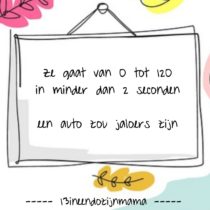 Ze gaat van 0 tot 120
in minder dan 2 seconden
een auto zou jaloers zijn
----- 13ineendozijnmama -----